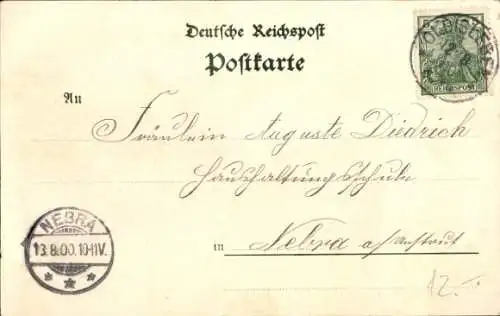 Deutsche Reichspost
Postkarte
An
Fräulein Auguste Diedrich
Haushaltungsschule
in Nebra a/Unstrut
NEBRA
13.8.00.10-11V.
REICHSPOST
12.-